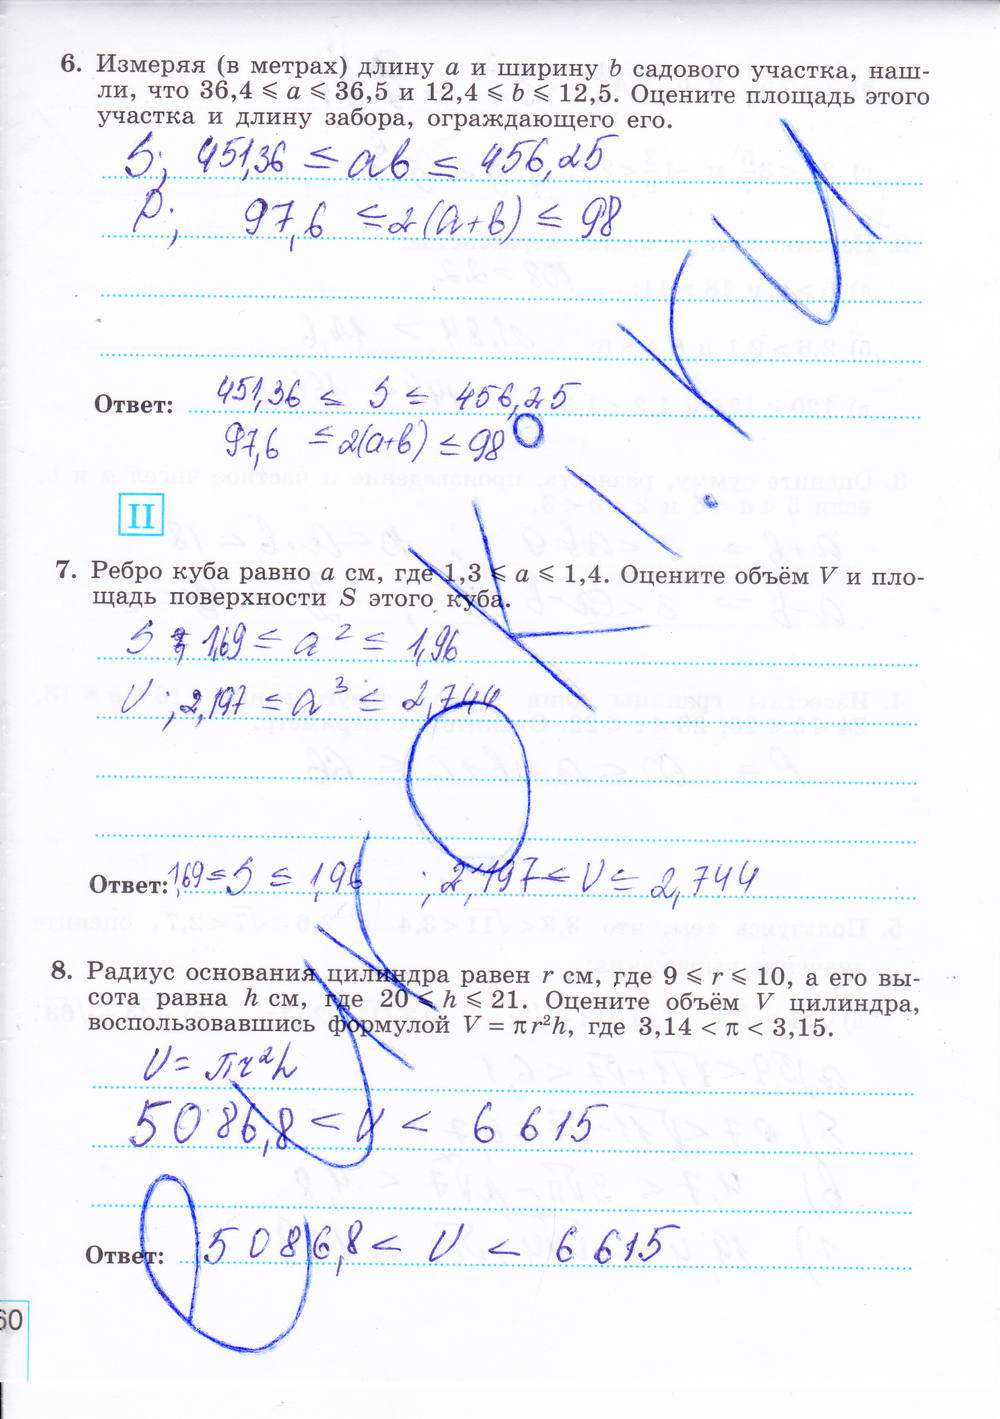 6. Измеряя (в метрах) длину a и ширину b садового участка, наш-
ли, что 36,4 ⩽ a ⩽ 36,5 и 12,4 ⩽ b ⩽ 12,5. Оцените площадь этого
участка и длину забора, ограждающего его.
S; 451,36 ≤ ab ≤ 456,25
P; 97,6 ≤ 2(a+b) ≤ 98
Ответ: 451,36 ≤ S ≤ 456,25
97,6 ≤ 2(a+b) ≤ 98
II
7. Ребро куба равно a см, где 1,3 ⩽ a ⩽ 1,4. Оцените объём V и пло-
щадь поверхности S этого куба.
S; 1,69 ≤ a² ≤ 1,96
V; 2,197 ≤ a³ ≤ 2,744
Ответ: 1,69 ≤ S ≤ 1,96 ; 2,197 ≤ V ≤ 2,744
8. Радиус основания цилиндра равен r см, где 9 ⩽ r ⩽ 10, а его вы-
сота равна h см, где 20 ⩽ h ⩽ 21. Оцените объём V цилиндра,
воспользовавшись формулой V = πr²h, где 3,14 < π < 3,15.
V = πr²h
5086,8 < V < 6615
Ответ: 5086,8 < V < 6615
60